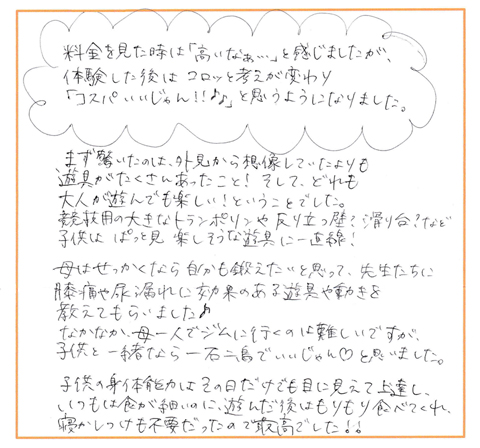 料金を見た時は「高いなぁ…」と感じましたが、
体験した後は コロッと考えが変わり
「コスパいいじゃん!!♪♪」と思うようになりました。
まず驚いたのは、外見から想像していたよりも
遊具がたくさんあったこと! そして、どれも
大人が遊んでも楽しい!ということでした。
競技用の大きなトランポリンや 反り立つ壁?滑り台?など
子供は ぱっと見 楽しそうな遊具に一直線!
母はせっかくなら自分も鍛えたいと思って、先生たちに
膝痛や尿漏れに効果のある遊具や動きを
教えてもらいました♪
なかなか、母一人でジムに行くのは難しいですが、
子供と一緒なら一石二鳥でいいじゃん♡と思いました。
子供の身体能力はその日だけでも目に見えて上達し、
いつもは食が細いのに、遊んだ後はもりもり食べてくれ、
寝かしつけも不要だったので最高でした!!